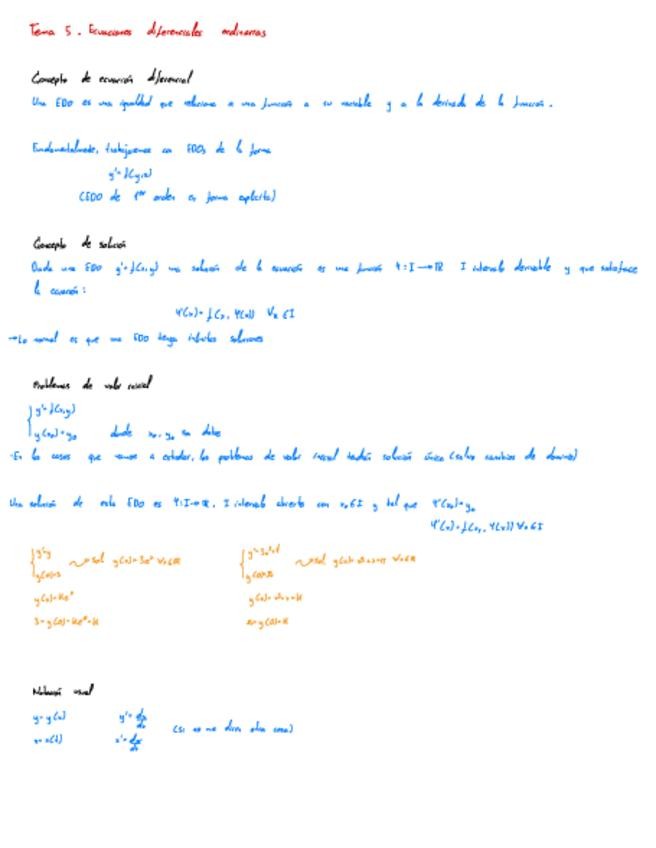 Tema 5. Ecuaciones diferenciales ordinarias
Concepto de ecuación diferencial
Una EDO es una igualdad que relaciona a una función a su variable y a la derivada de la función.
Fundamentalmente, trabajaremos con EDOs de la forma
y'=f(y,x)
(EDO de 1er orden es forma explícita)
Concepto de solución
Dada una EDO y'=f(x,y) una solución de la ecuación es una función φ: I→ℝ I intervalo derivable y que satisface
la ecuación:
φ'(x)=f(x, φ(x)) ∀x∈I
→Lo normal es que una EDO tenga infinitas soluciones
Problemas de valor inicial
y'=f(x,y)
y(x₀)=y₀ donde x₀, y₀ son datos
·En los casos que vamos a estudiar, los problemas de valor inicial tendrán solución única (salvo cambios de dominio)
Una solución de esta EDO es φ: I→ℝ, I intervalo abierto con x₀∈I y tal que φ(x₀)=y₀
φ'(x)=f(x, φ(x)) ∀x∈I
y'=y
y(0)=3 sol y(x)=3eˣ ∀x∈ℝ
y(x)=Keˣ
3=y(0)=Ke⁰=K
y'=3x²+1
sol
Notación usual
y=y(x) y'=dy/dx
x=x(t) x'=dx/dt (si no me dicen otra cosa)